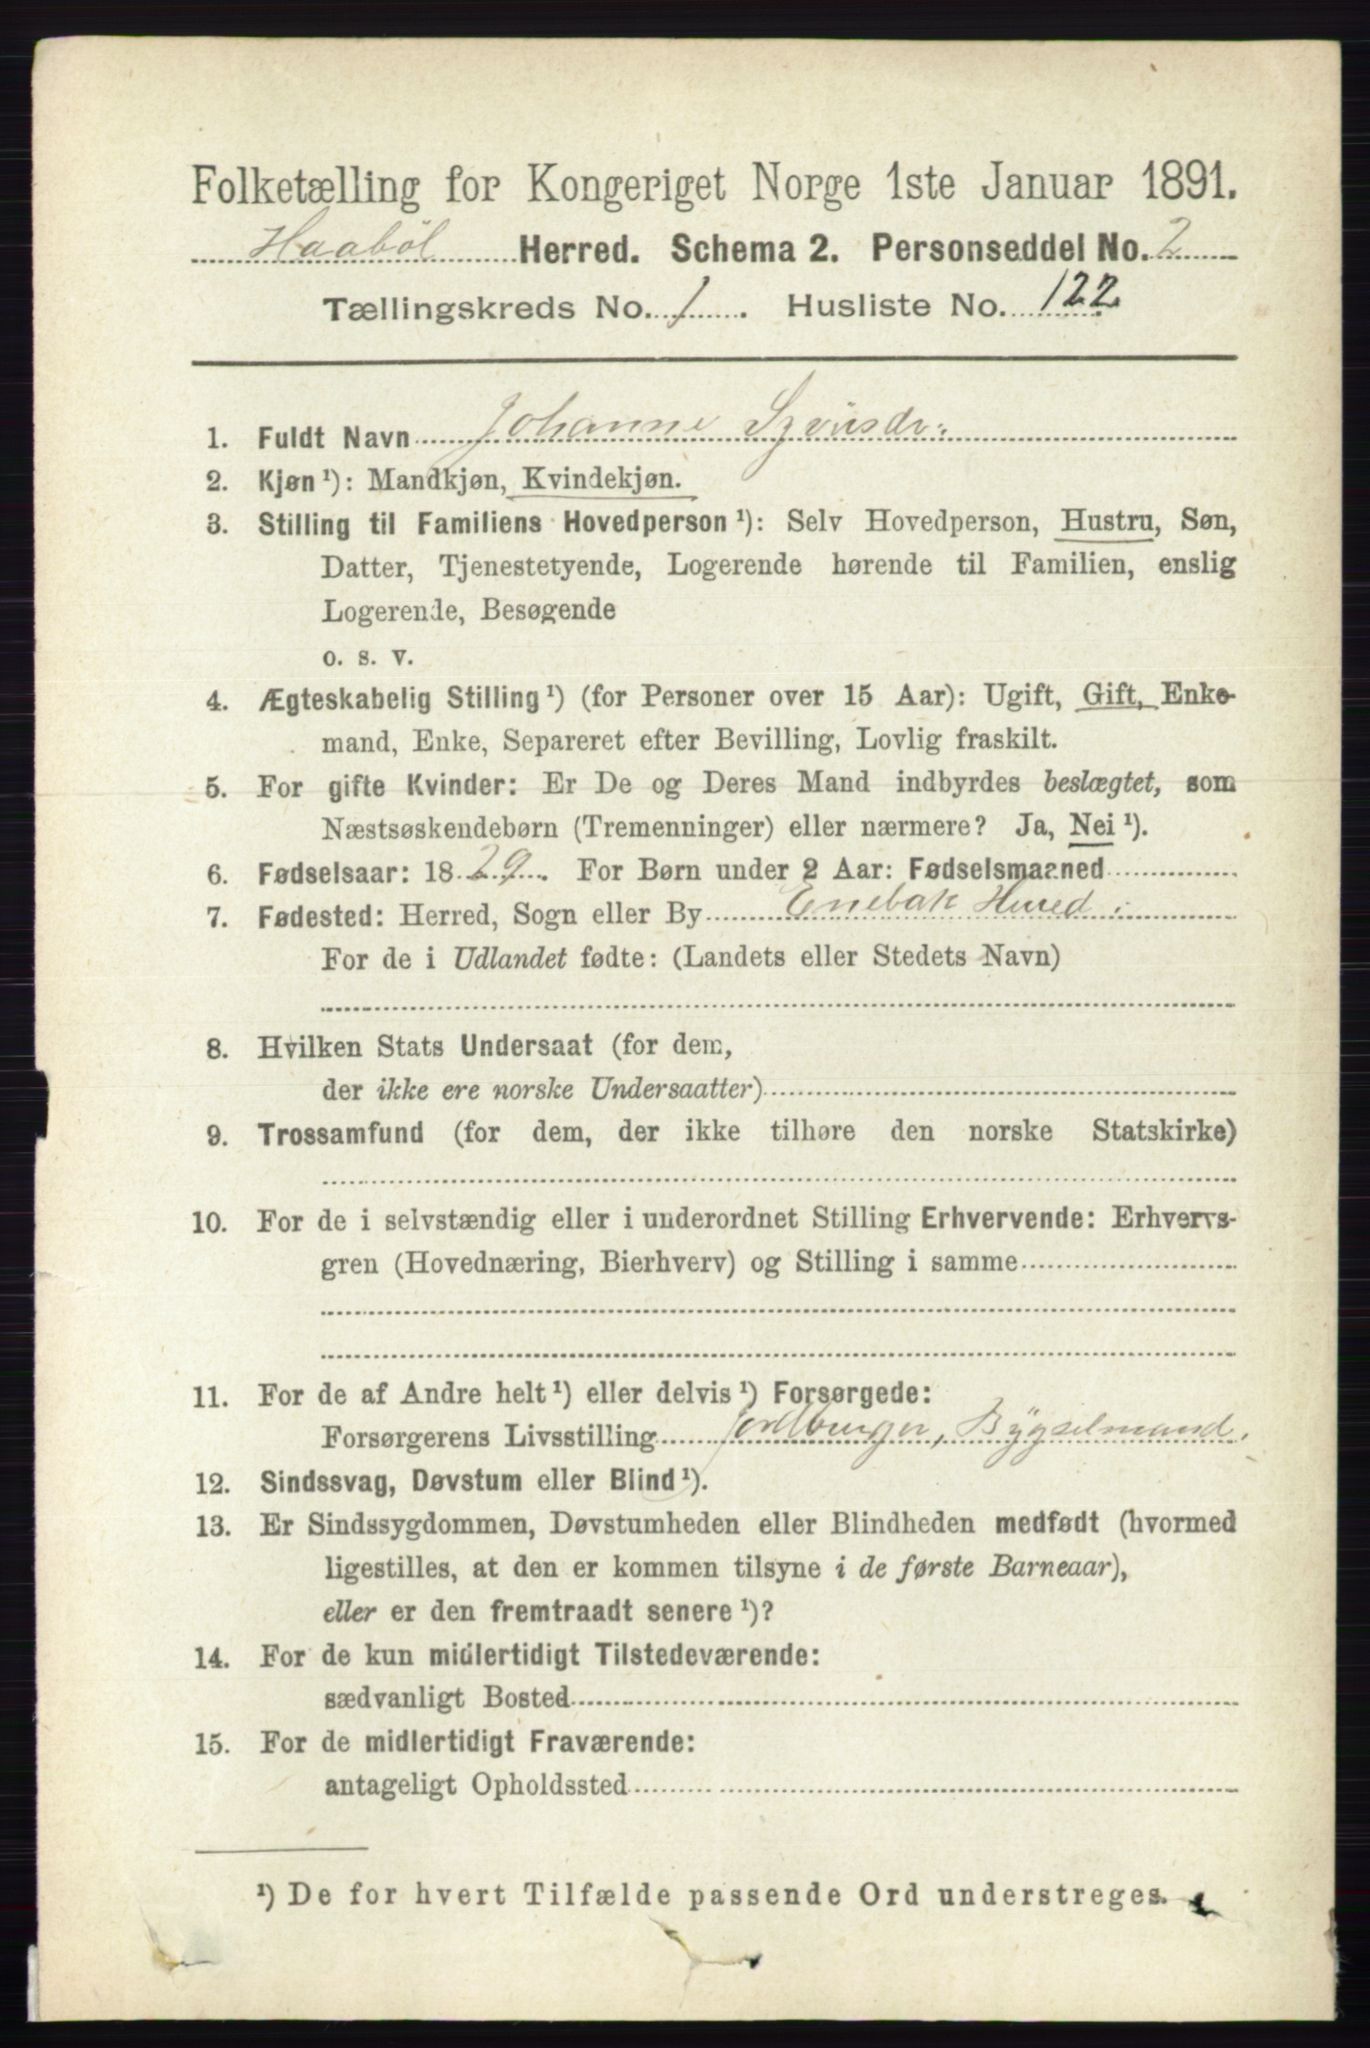 Folketælling for Kongeriget Norge 1ste Januar 1891.
Haabøl Herred. Schema 2. Personseddel No. 2
Tællingskreds No. 1. Husliste No. 122
1. Fuldt Navn Johanne
2. Kjøn ¹): Mandkjøn, Kvindekjøn.
3. Stilling til Familiens Hovedperson ¹): Selv Hovedperson, Hustru, Søn,
Datter, Tjenestetyende, Logerende hørende til Familien, enslig
Logerende, Besøgende
o. s. v.
4. Ægteskabelig Stilling ¹) (for Personer over 15 Aar): Ugift, Gift, Enke-
mand, Enke, Separeret efter Bevilling, Lovlig fraskilt.
5. For gifte Kvinder: Er De og Deres Mand indbyrdes beslægtet, som
Næstsøskendebørn (Tremenninger) eller nærmere? Ja, Nei ¹).
6. Fødselsaar: 1829. For Børn under 2 Aar: Fødselsmaaned
7. Fødested: Herred, Sogn eller By Enebak Herred.
For de i Udlandet fødte: (Landets eller Stedets Navn)
8. Hvilken Stats Undersaat (for dem,
der ikke ere norske Undersaatter)
9. Trossamfund (for dem, der ikke tilhøre den norske Statskirke)
10. For de i selvstændig eller i underordnet Stilling Erhvervende: Erhvervs-
gren (Hovednæring, Bierhverv) og Stilling i samme
11. For de af Andre helt ¹) eller delvis ¹) Forsørgede:
Forsørgerens Livsstilling Jordbruger, Bygselmand.
12. Sindssvag, Døvstum eller Blind ¹).
13. Er Sindssygdommen, Døvstumheden eller Blindheden medfødt (hvormed
ligestilles, at den er kommen tilsyne i de første Barneaar),
eller er den fremtraadt senere ¹)?
14. For de kun midlertidigt Tilstedeværende:
sædvanligt Bosted
15. For de midlertidigt Fraværende:
antageligt Opholdssted
¹) De for hvert Tilfælde passende Ord understreges.